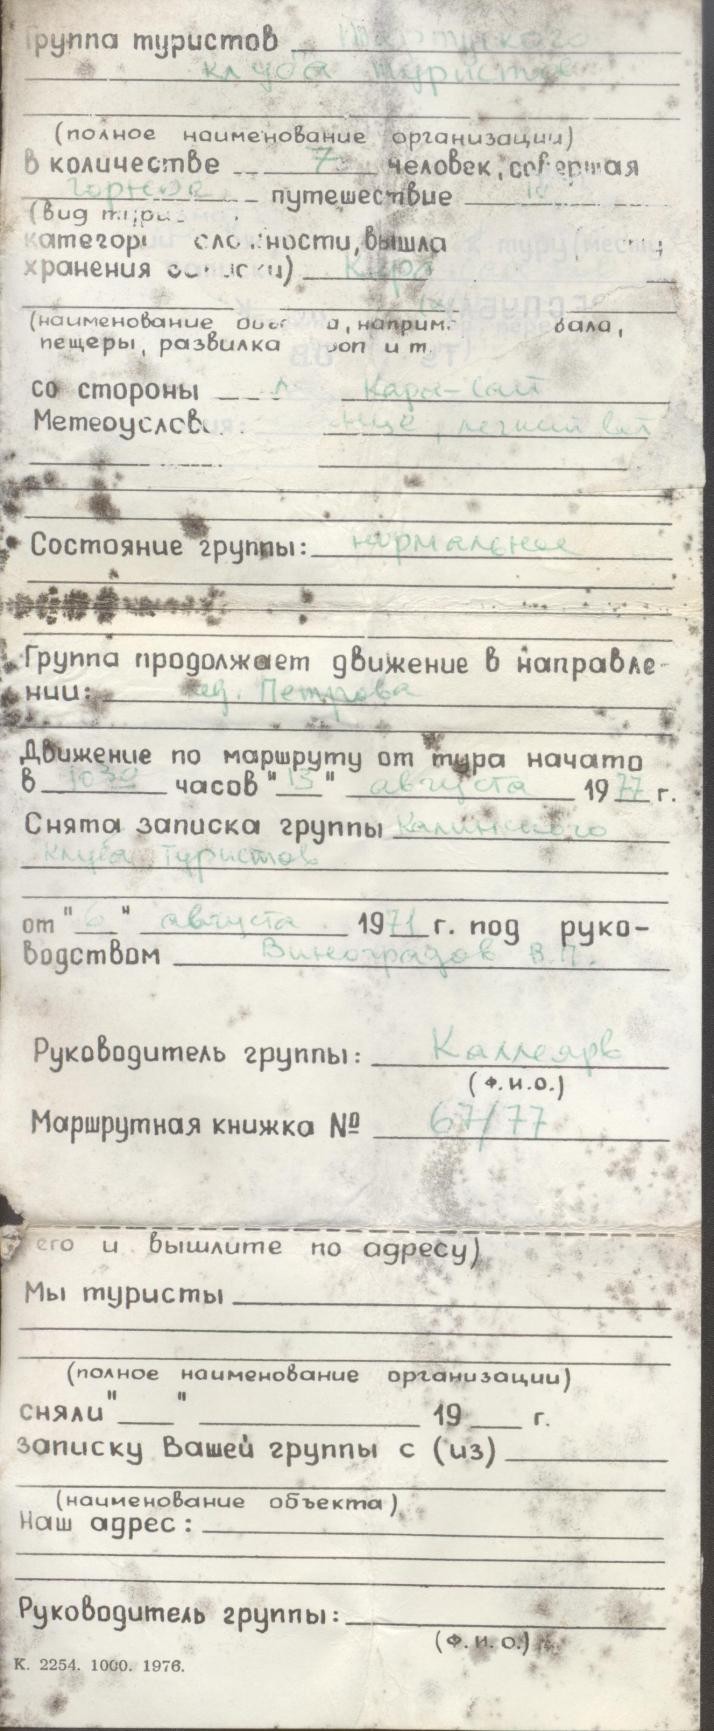 Группа туристов Тартуского
клуба туристов
(полное наименование организации)
в количестве 7 человек, совершая
горное путешествие
(вид
сложности, вышла к туру (месту
хранения записки)
(наименование
пещеры, развилка и т.
со стороны Кара-Сай
легкий
Состояние группы: нормальное
Группа продолжает движение в направле-
нии: лед. Петрова
Движение по маршруту от тура начато
в 10 30 часов "13" августа 1977 г.
Снята записка группы Калининского
клуба туристов
от "6" августа 1971 г. под руко-
водством Виноградов В.П.
Руководитель группы: Каллеярв
(Ф.И.О.)
Маршрутная книжка № 67/77
его и вышлите по адресу)
Мы туристы
(полное наименование организации)
сняли" " 19 г.
записку Вашей группы с (из)
(наименование объекта)
Наш адрес:
Руководитель группы:
(Ф.И.О.)
К. 2254. 1000. 1976.